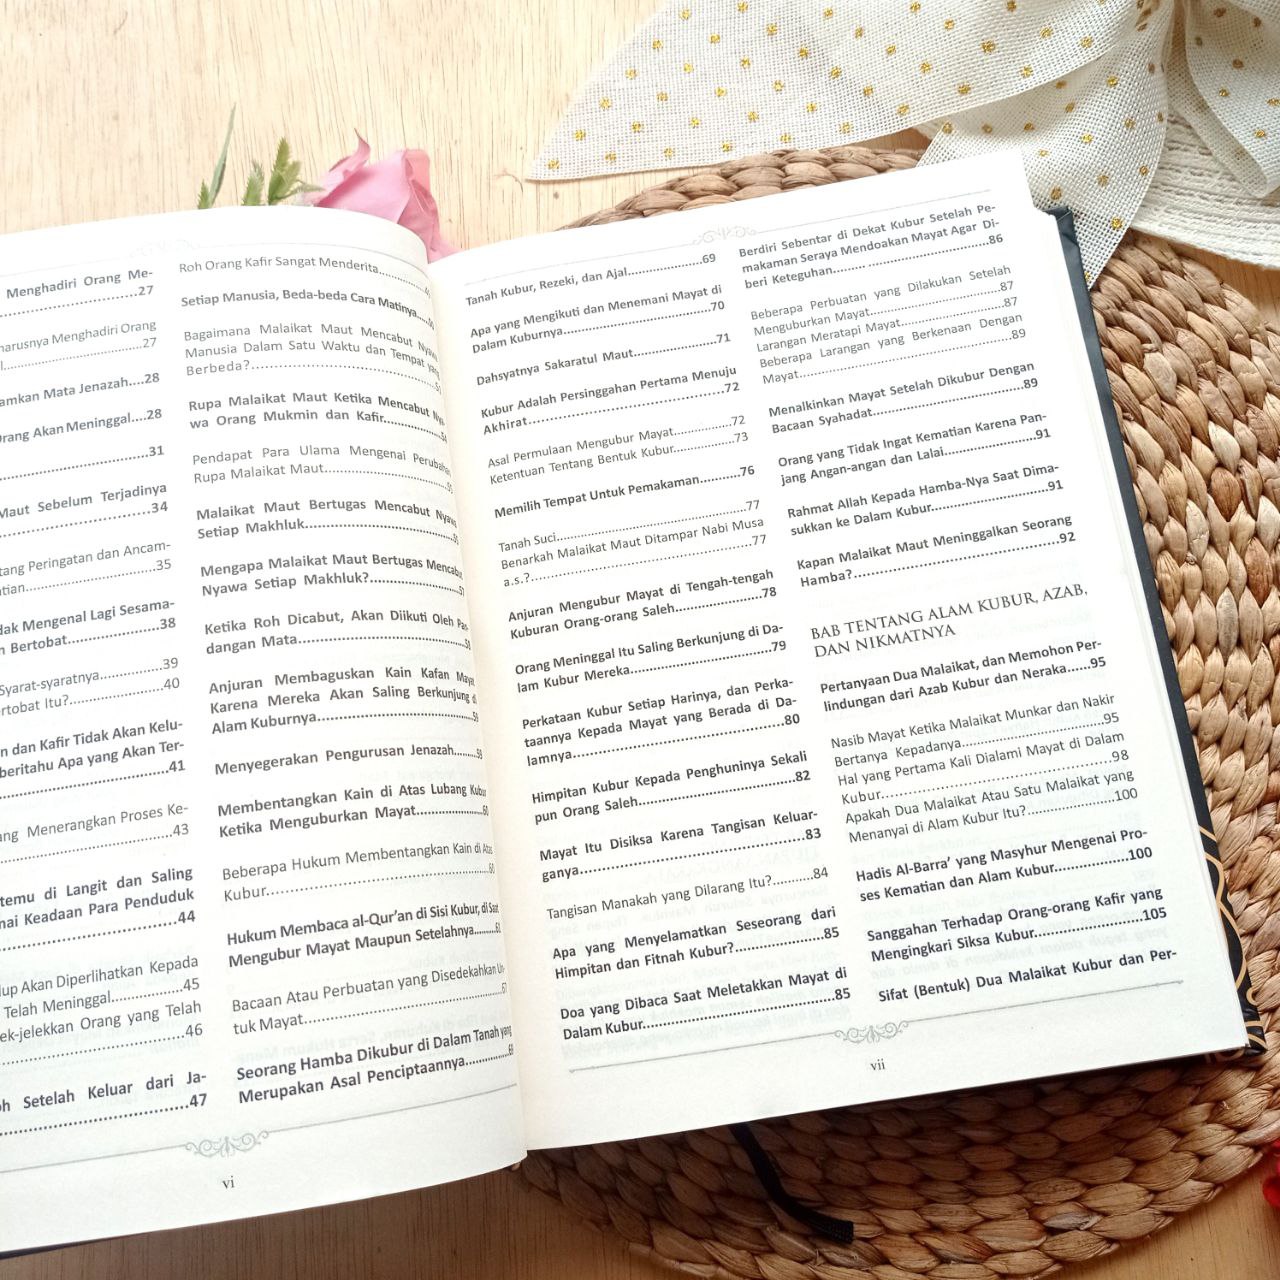 Menghadiri Orang Me-
27
harusnya Menghadiri Orang
27
amkan Mata Jenazah....28
Orang Akan Meninggal....28
31
Maut Sebelum Terjadinya
34
tang Peringatan dan Ancam-
35
dak Mengenal Lagi Sesama-
Bertobat 38
Syarat-syaratnya 39
ertobat Itu? 40
n dan Kafir Tidak Akan Kelu-
beritahu Apa yang Akan Ter-
41
ang Menerangkan Proses Ke-
43
temu di Langit dan Saling
nai Keadaan Para Penduduk
44
dup Akan Diperlihatkan Kepada
Telah Meninggal 45
ek-jelekkan Orang yang Telah
46
oh Setelah Keluar dari Ja-
47
Roh Orang Kafir Sangat Menderita
Setiap Manusia, Beda-beda Cara Matinya
Bagaimana Malaikat Maut Mencabut Nyawa
Manusia Dalam Satu Waktu dan Tempat yang
Berbeda?
Rupa Malaikat Maut Ketika Mencabut Nya-
wa Orang Mukmin dan Kafir
Pendapat Para Ulama Mengenai Perubahan
Rupa Malaikat Maut
Malaikat Maut Bertugas Mencabut Nyawa
Setiap Makhluk
Mengapa Malaikat Maut Bertugas Mencabut
Nyawa Setiap Makhluk?
Ketika Roh Dicabut, Akan Diikuti Oleh Pan-
dangan Mata
Anjuran Membaguskan Kain Kafan Mayat
Karena Mereka Akan Saling Berkunjung di
Alam Kuburnya
Menyegerakan Pengurusan Jenazah
Membentangkan Kain di Atas Lubang Kubur
Ketika Menguburkan Mayat 60
Beberapa Hukum Membentangkan Kain di Atas
Kubur 60
Hukum Membaca al-Qur'an di Sisi Kubur, di Saat
Mengubur Mayat Maupun Setelahnya
Bacaan Atau Perbuatan yang Disedekahkan Un-
tuk Mayat
Seorang Hamba Dikubur di Dalam Tanah yang
Merupakan Asal Penciptaannya
vi
Tanah Kubur, Rezeki, dan Ajal 69
Apa yang Mengikuti dan Menemani Mayat di
Dalam Kuburnya 70
Dahsyatnya Sakaratul Maut 71
Kubur Adalah Persinggahan Pertama Menuju
Akhirat 72
Asal Permulaan Mengubur Mayat 72
Ketentuan Tentang Bentuk Kubur 73
Memilih Tempat Untuk Pemakaman 76
Tanah Suci 77
Benarkah Malaikat Maut Ditampar Nabi Musa
a.s.? 77
Anjuran Mengubur Mayat di Tengah-tengah
Kuburan Orang-orang Saleh 78
Orang Meninggal Itu Saling Berkunjung di Da-
lam Kubur Mereka 79
Perkataan Kubur Setiap Harinya, dan Perka-
taannya Kepada Mayat yang Berada di Da-
lamnya 80
Himpitan Kubur Kepada Penghuninya Sekali
pun Orang Saleh 82
Mayat Itu Disiksa Karena Tangisan Keluar-
ganya 83
Tangisan Manakah yang Dilarang Itu? 84
Apa yang Menyelamatkan Seseorang dari
Himpitan dan Fitnah Kubur? 85
Doa yang Dibaca Saat Meletakkan Mayat di
Dalam Kubur 85
Berdiri Sebentar di Dekat Kubur Setelah Pe-
makaman Seraya Mendoakan Mayat Agar Di-
beri Keteguhan 86
Beberapa Perbuatan yang Dilakukan Setelah
Menguburkan Mayat 87
Larangan Meratapi Mayat 87
Beberapa Larangan yang Berkenaan Dengan
Mayat 89
Menalkinkan Mayat Setelah Dikubur Dengan
Bacaan Syahadat 89
Orang yang Tidak Ingat Kematian Karena Pan-
jang Angan-angan dan Lalai 91
Rahmat Allah Kepada Hamba-Nya Saat Dima-
sukkan ke Dalam Kubur 91
Kapan Malaikat Maut Meninggalkan Seorang
Hamba? 92
BAB TENTANG ALAM KUBUR, AZAB,
DAN NIKMATNYA
Pertanyaan Dua Malaikat, dan Memohon Per-
lindungan dari Azab Kubur dan Neraka 95
Nasib Mayat Ketika Malaikat Munkar dan Nakir
Bertanya Kepadanya 95
Hal yang Pertama Kali Dialami Mayat di Dalam
Kubur 98
Apakah Dua Malaikat Atau Satu Malaikat yang
Menanyai di Alam Kubur Itu? 100
Hadis Al-Barra' yang Masyhur Mengenai Pro-
ses Kematian dan Alam Kubur 100
Sanggahan Terhadap Orang-orang Kafir yang
Mengingkari Siksa Kubur 105
Sifat (Bentuk) Dua Malaikat Kubur dan Per-
vii